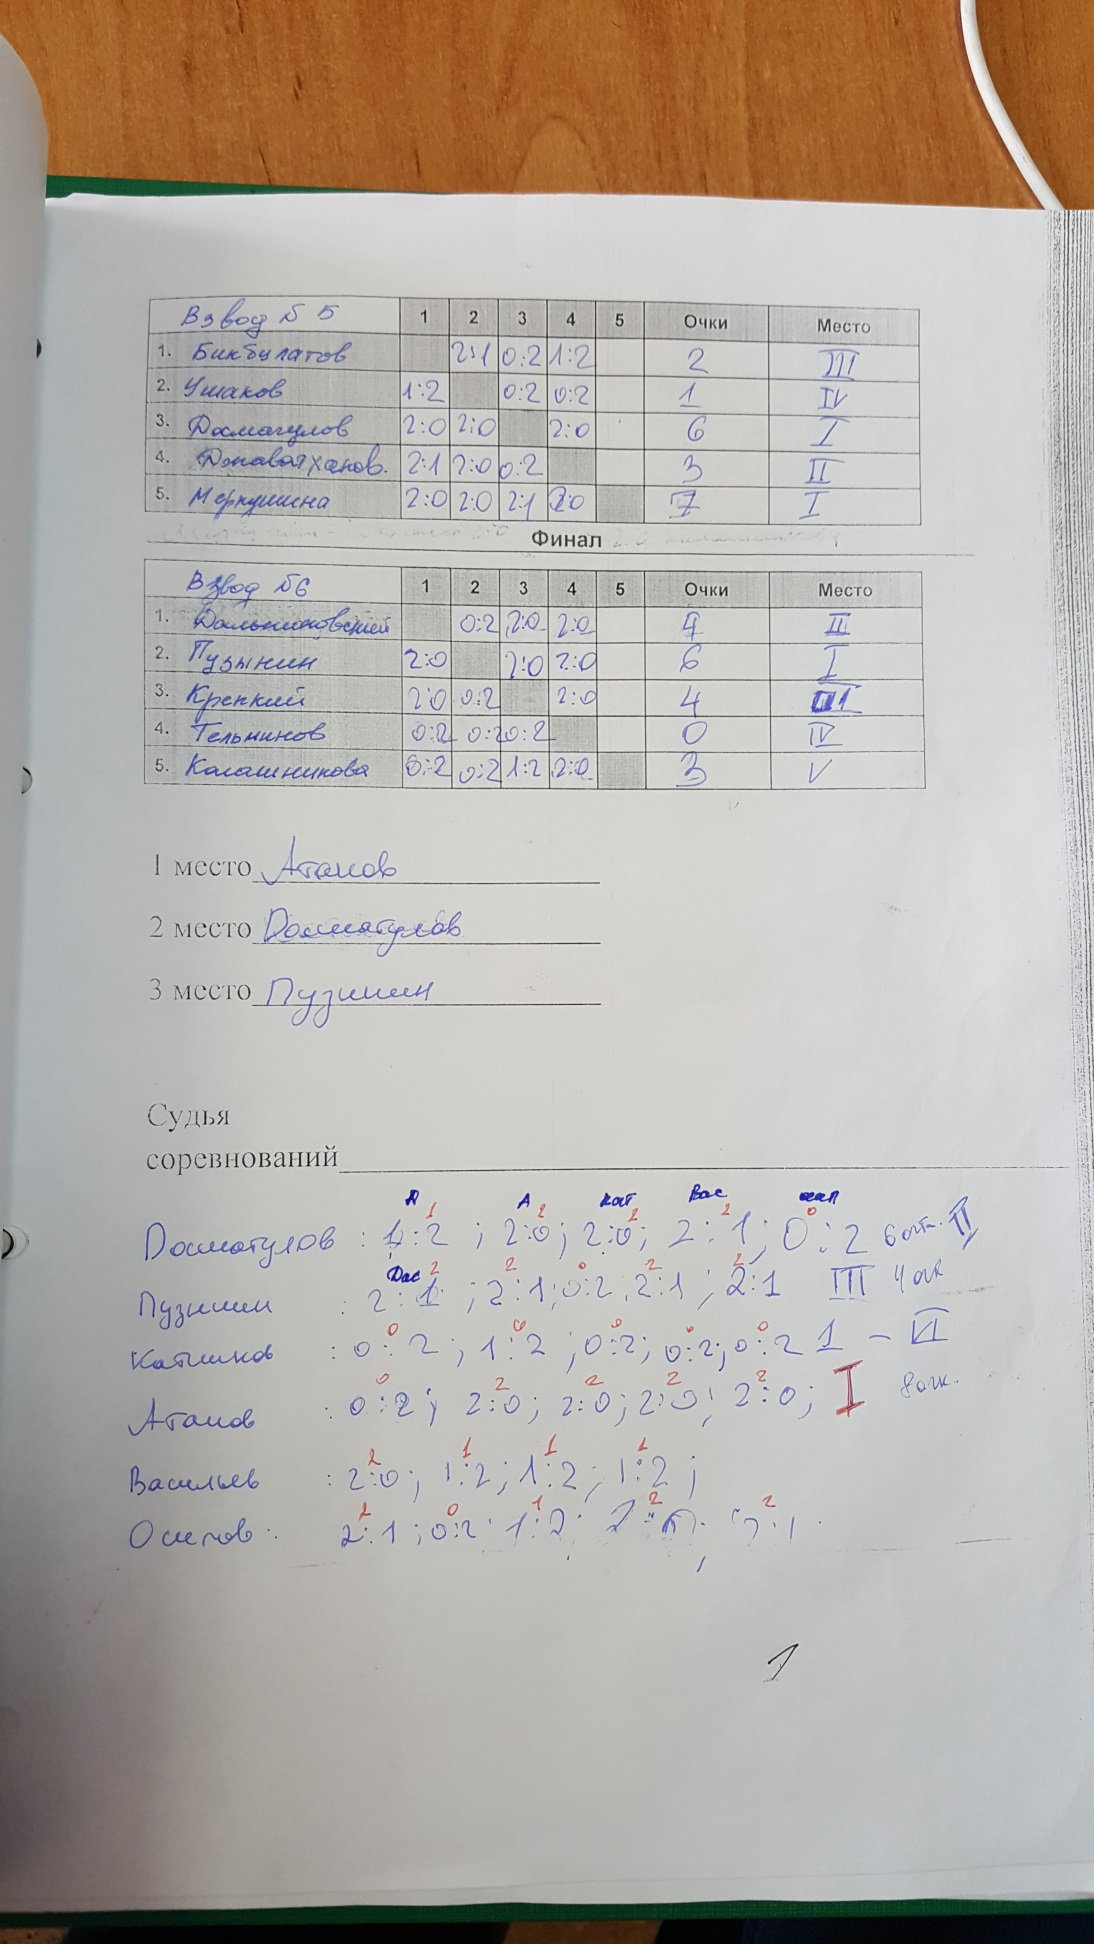 Взвод № 5 1 2 3 4 5 Очки Место
1. Бикбулатов 2:1 0:2 1:2 2 III
2. Ушаков 1:2 0:2 0:2 1 IV
3. Досмагулов 2:0 2:0 2:0 6 I
4. 2:1 2:0 0:2 3 II
5. Меркушина 2:0 2:0 2:1 7 I
Финал
Взвод №6 1 2 3 4 5 Очки Место
1. 0:2 2:0 2:0 4 II
2. Пузынин 2:0 2:0 2:0 6 I
3. Крепкий 2:0 0:2 2:0 4
4. Тельминов 0:2 0:2 0:2 0 IV
5. Калашникова 0:2 0:2 1:2 2:0 3 V
1 место Атаков
2 место Досмагулов
3 место Пузинин
Судья
соревнований
А Кат Вас
1 2 2 2 0
Досмагулов : 1:2 ; 2:0; 2:0; 2:1; 0:2 6 очк. II
Дос 2 2 0 2 2
Пузинин : 2:1 ; 2:1; 0:2; 2:1 ; 2:1 III 4 очк
0 0 0 0 0
: 0:2 ; 1:2 ; 0:2; 0:2; 0:2 1 – VI
0 2 2 2 2
Атаков : 0:2; 2:0; 2:0; 2:0; 2:0; I 8 очк.
2 1 1 1
Васильев : 2:0; 1:2; 1:2; 1:2;
2 0 1 2 2
Осипов : 2:1; 0:2 1:2;
1